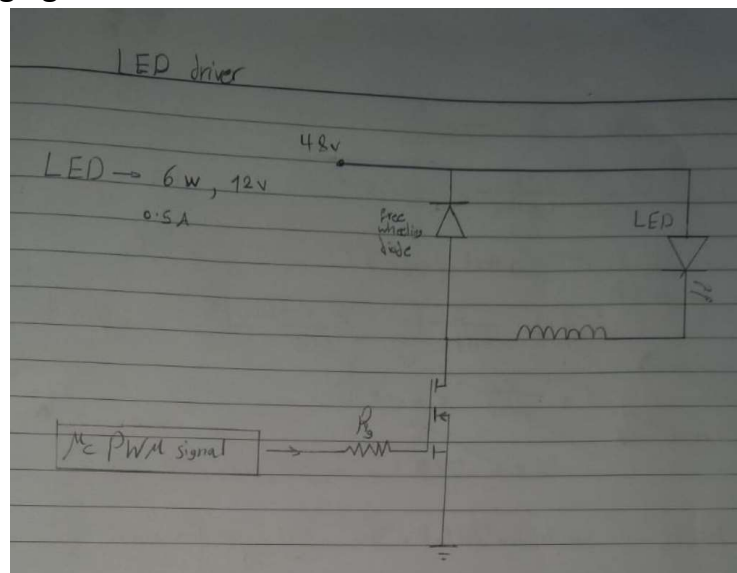 LED driver
48v
LED → 6 W, 12v
0.5A
free
wheeling
diode
LED
Rg
μc PWM signal